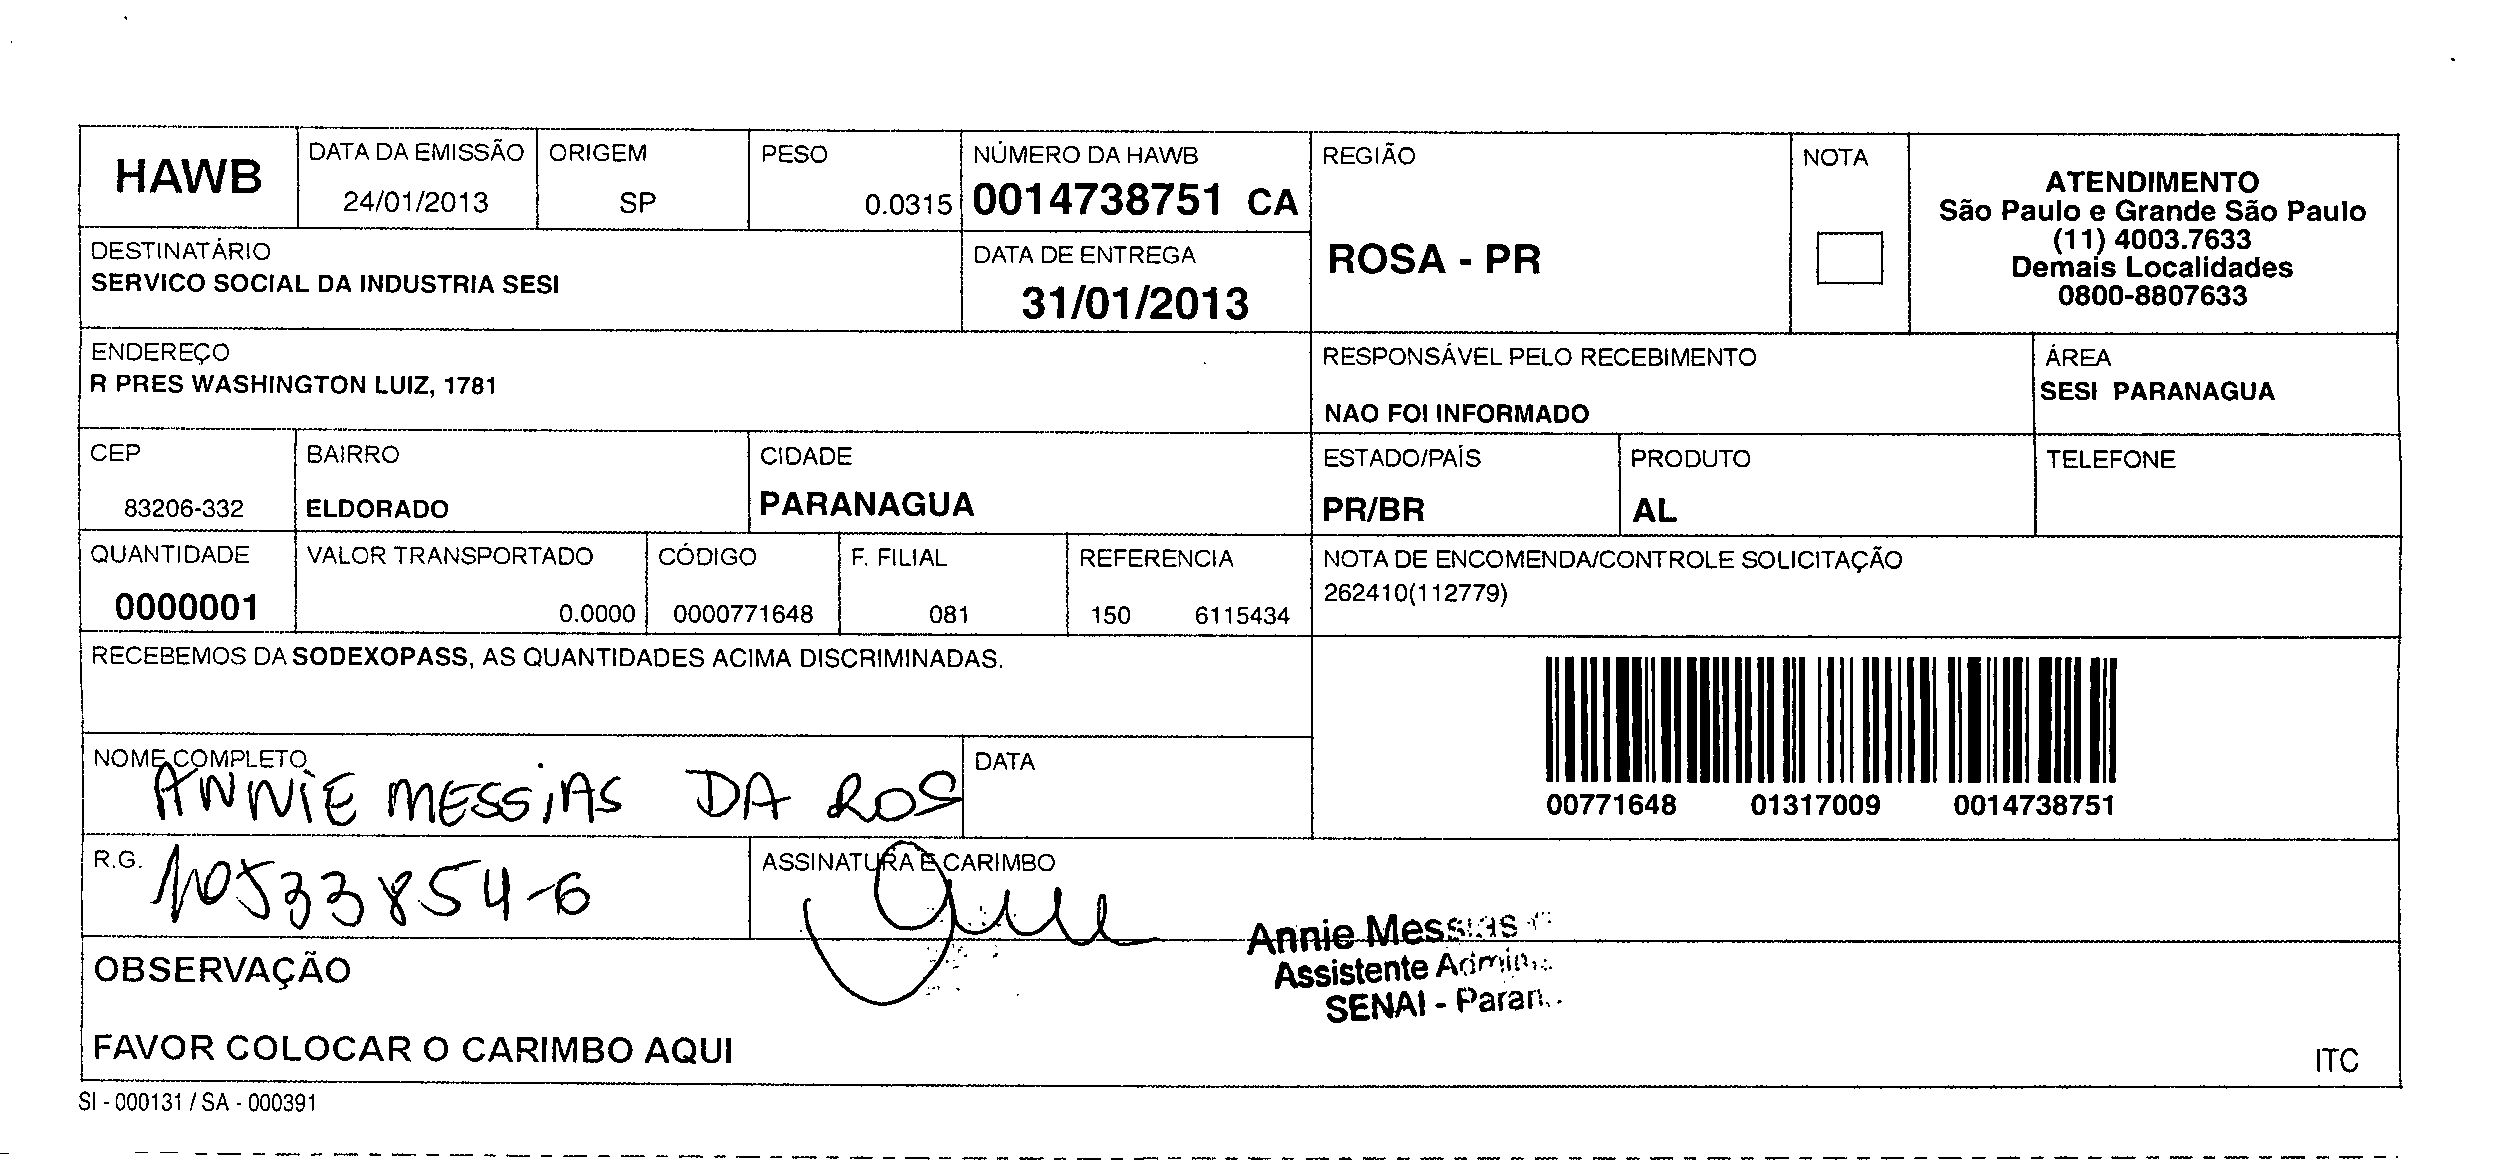 HAWB
DATA DA EMISSÃO
24/01/2013
ORIGEM
SP
PESO
0.0315
NÚMERO DA HAWB
0014738751 CA
REGIÃO
ROSA - PR
NOTA
ATENDIMENTO
São Paulo e Grande São Paulo
(11) 4003.7633
Demais Localidades
0800-8807633
DESTINATÁRIO
SERVICO SOCIAL DA INDUSTRIA SESI
DATA DE ENTREGA
31/01/2013
ENDEREÇO
R PRES WASHINGTON LUIZ, 1781
RESPONSÁVEL PELO RECEBIMENTO
NAO FOI INFORMADO
ÁREA
SESI PARANAGUA
CEP
83206-332
BAIRRO
ELDORADO
CIDADE
PARANAGUA
ESTADO/PAÍS
PR/BR
PRODUTO
AL
TELEFONE
QUANTIDADE
0000001
VALOR TRANSPORTADO
0.0000
CÓDIGO
0000771648
F. FILIAL
081
REFERENCIA
150 6115434
NOTA DE ENCOMENDA/CONTROLE SOLICITAÇÃO
262410(112779)
RECEBEMOS DA SODEXOPASS, AS QUANTIDADES ACIMA DISCRIMINADAS.
00771648 01317009 0014738751
NOME COMPLETO
ANNIE MESSIAS DA ROS
DATA
R.G.
10533854-6
ASSINATURA E CARIMBO
Annie Messias
Assistente
SENAI -
OBSERVAÇÃO
FAVOR COLOCAR O CARIMBO AQUI
ITC
SI - 000131 / SA - 000391